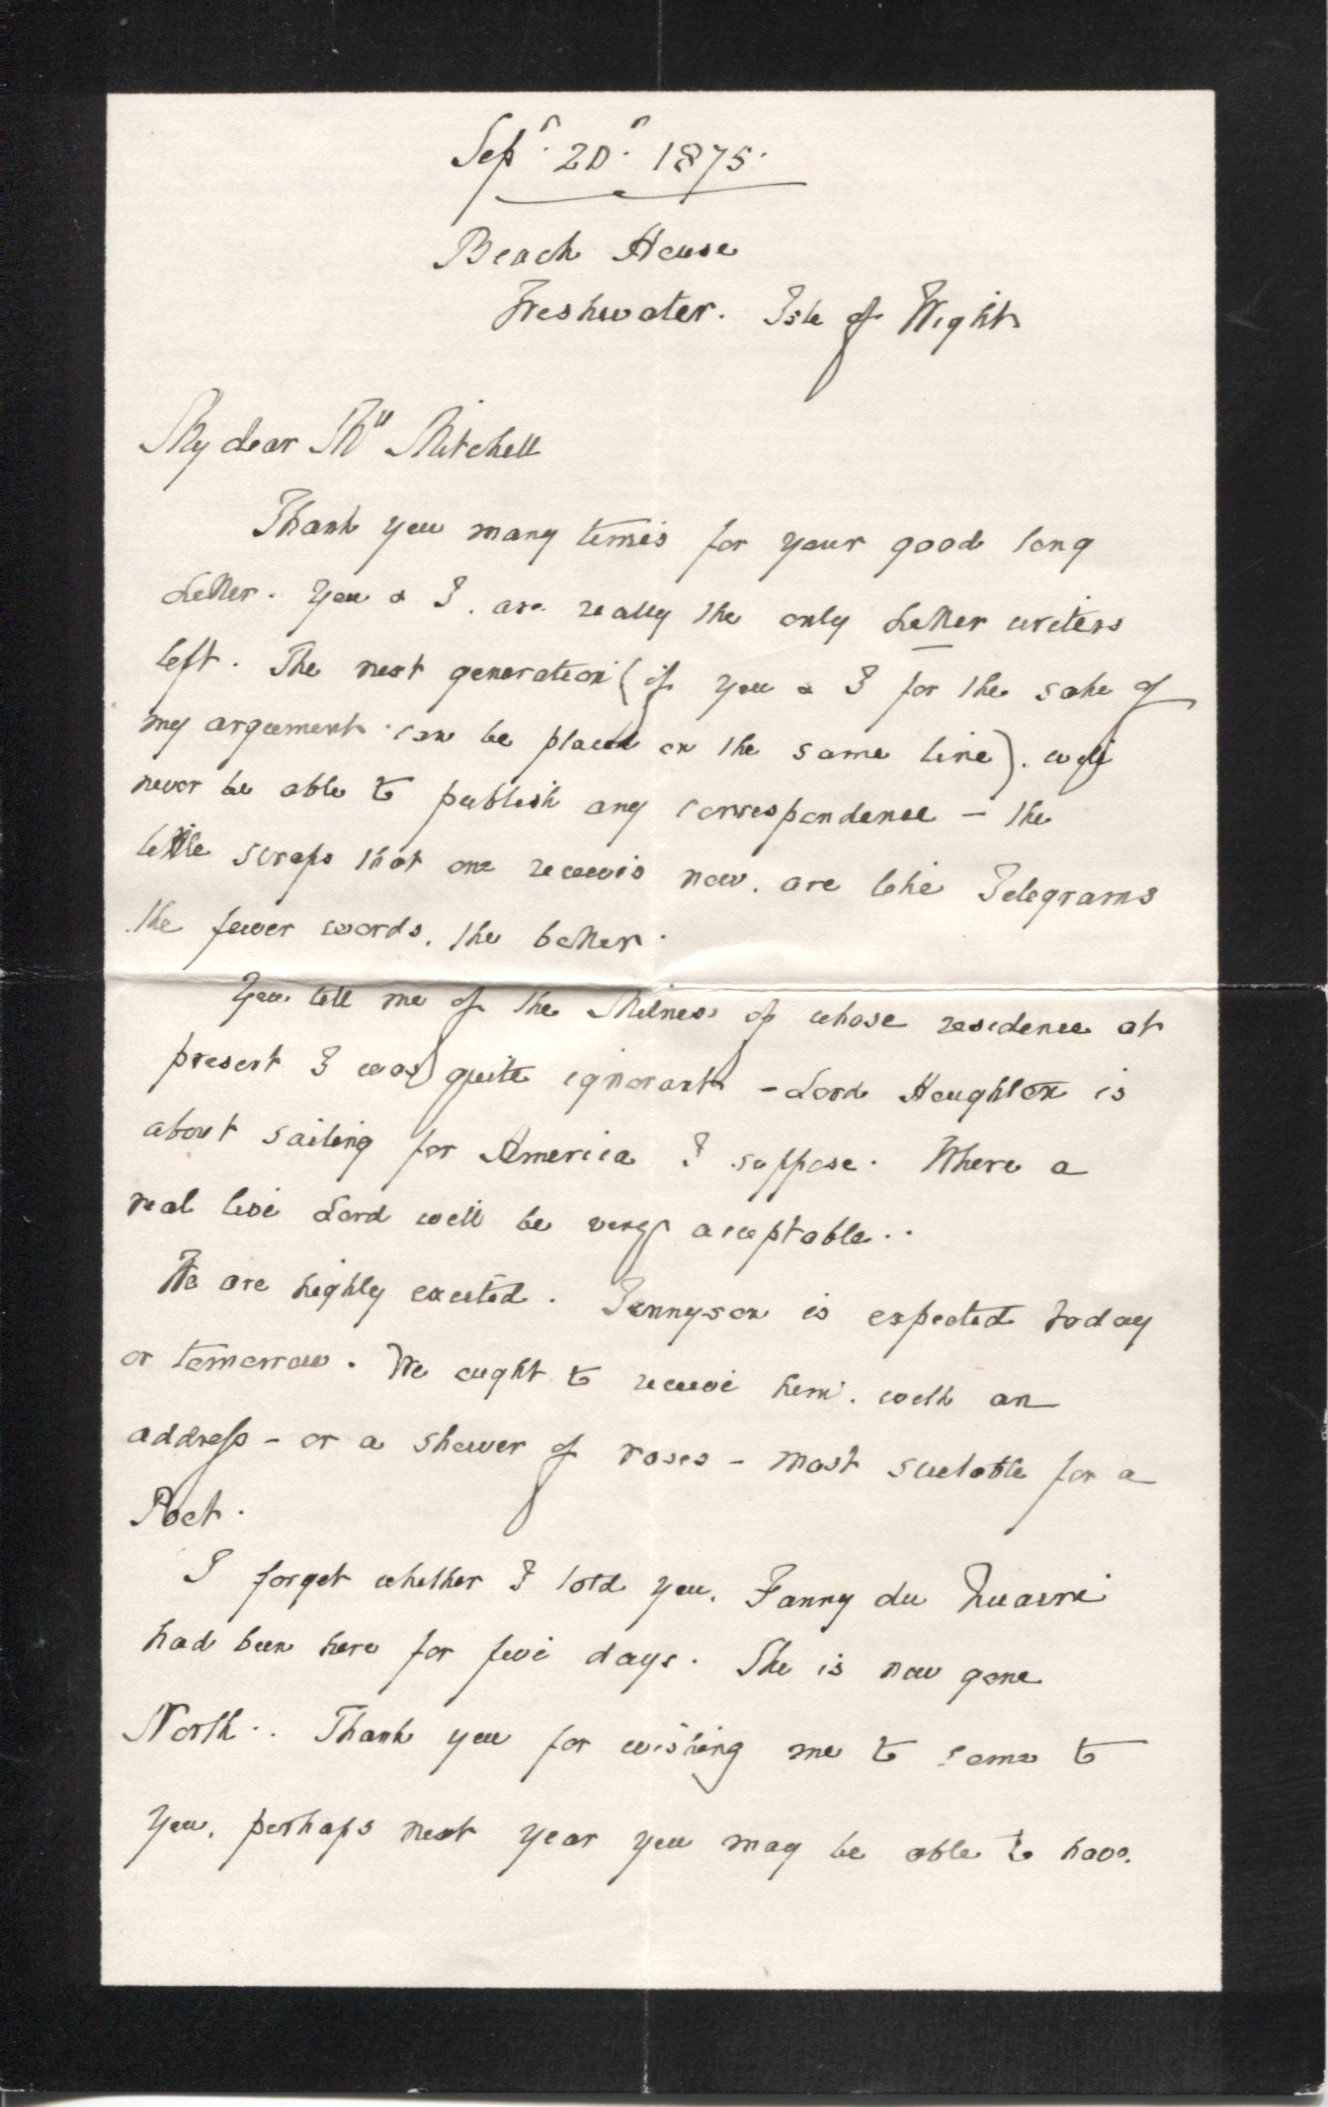 Sepr. 20. 1875.
Beach House
Freshwater. Isle of Wight
My dear Mrs Mitchell
Thank you many times for your good long
Letter. You & I are really the only Letter writers
left. The next generation (if you & I for the sake of
my argument can be placed on the same line). will
never be able to publish any correspondence - the
little scraps that one receives now. are like Telegrams
the fewer words, the better.
You tell me of the Milnes's of whose residence at
present I was quite ignorant - Lord Houghton is
about sailing for America I suppose. Where a
real live Lord will be very acceptable..
We are highly excited. Tennyson is expected today
or tomorrow. We ought to receive him. with an
address - or a shower of roses - most suitable for a
Poet.
I forget whether I told you. Fanny du
had been here for five days. She is now gone
North.. Thank you for wishing me to come to
you, perhaps next year you may be able to have